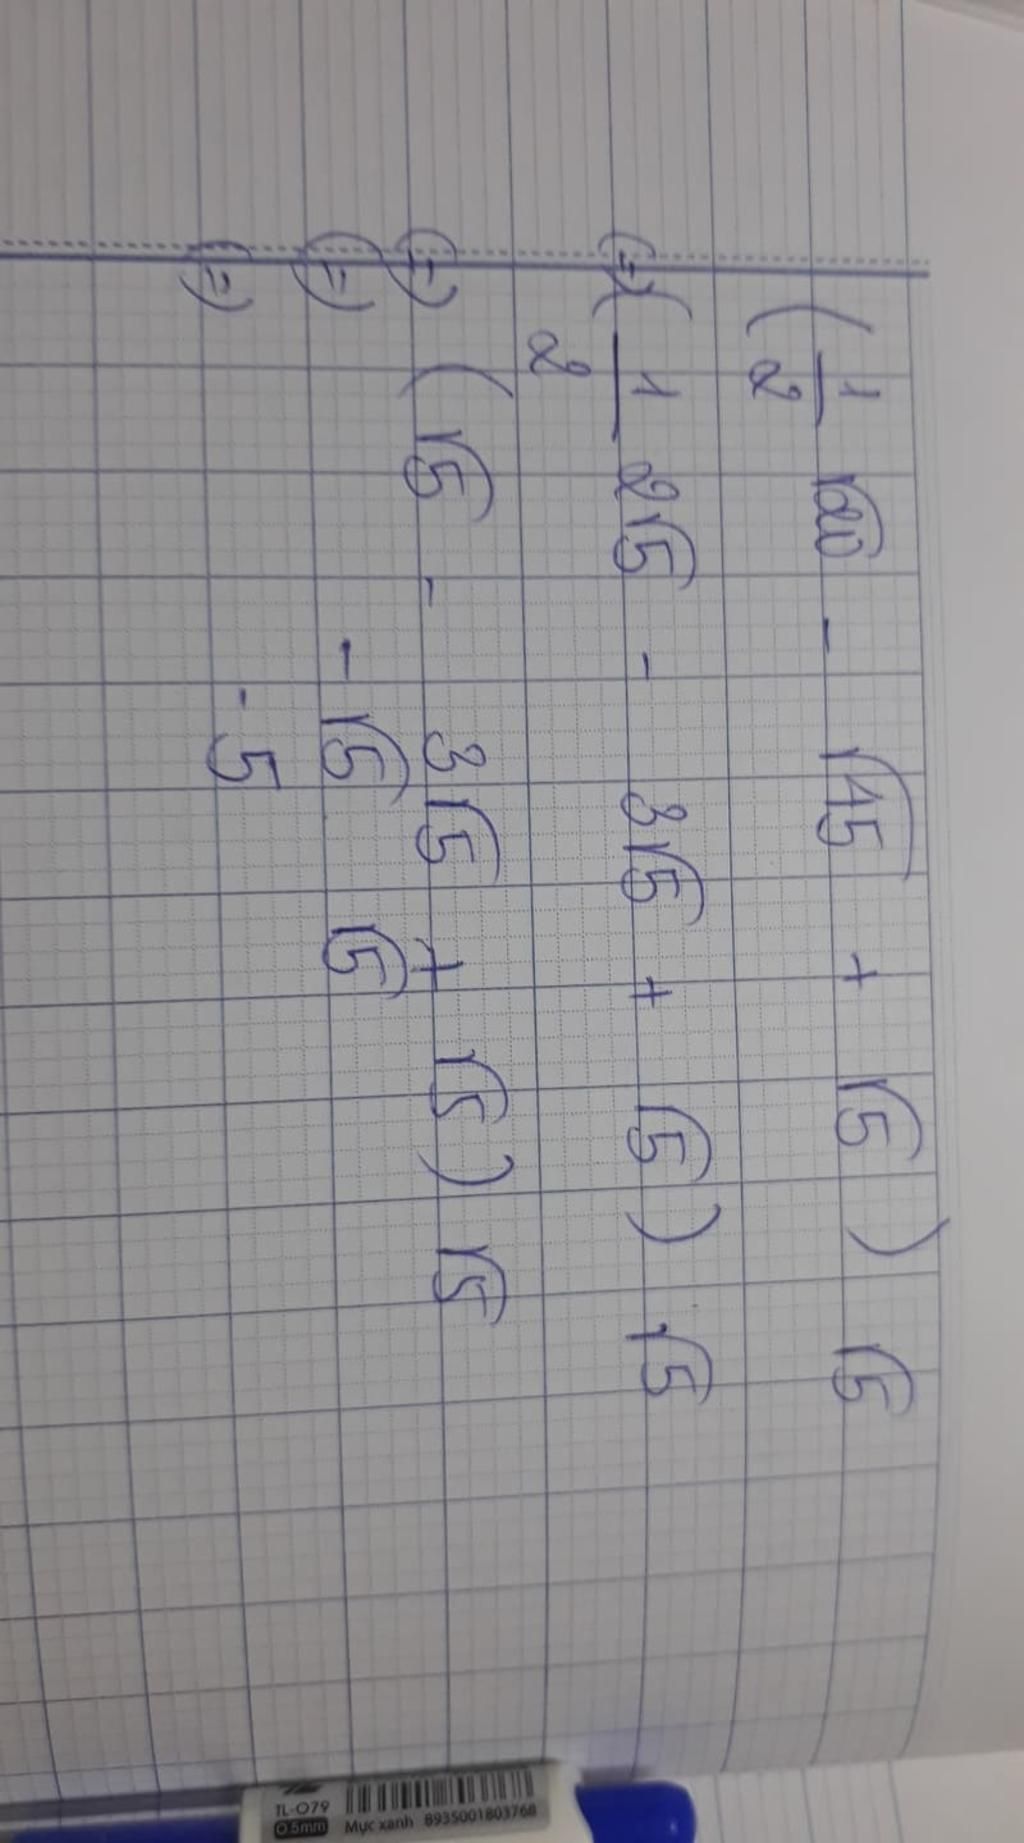 (1/2 √20 - √45 + √5) √5
(=) (1/2 2√5 - 3√5 + √5) √5
(=) (√5 - 3√5 + √5) √5
(=) - √5 √5
(=) -5
TL-079
0.5mm Mực xanh 8935001803768